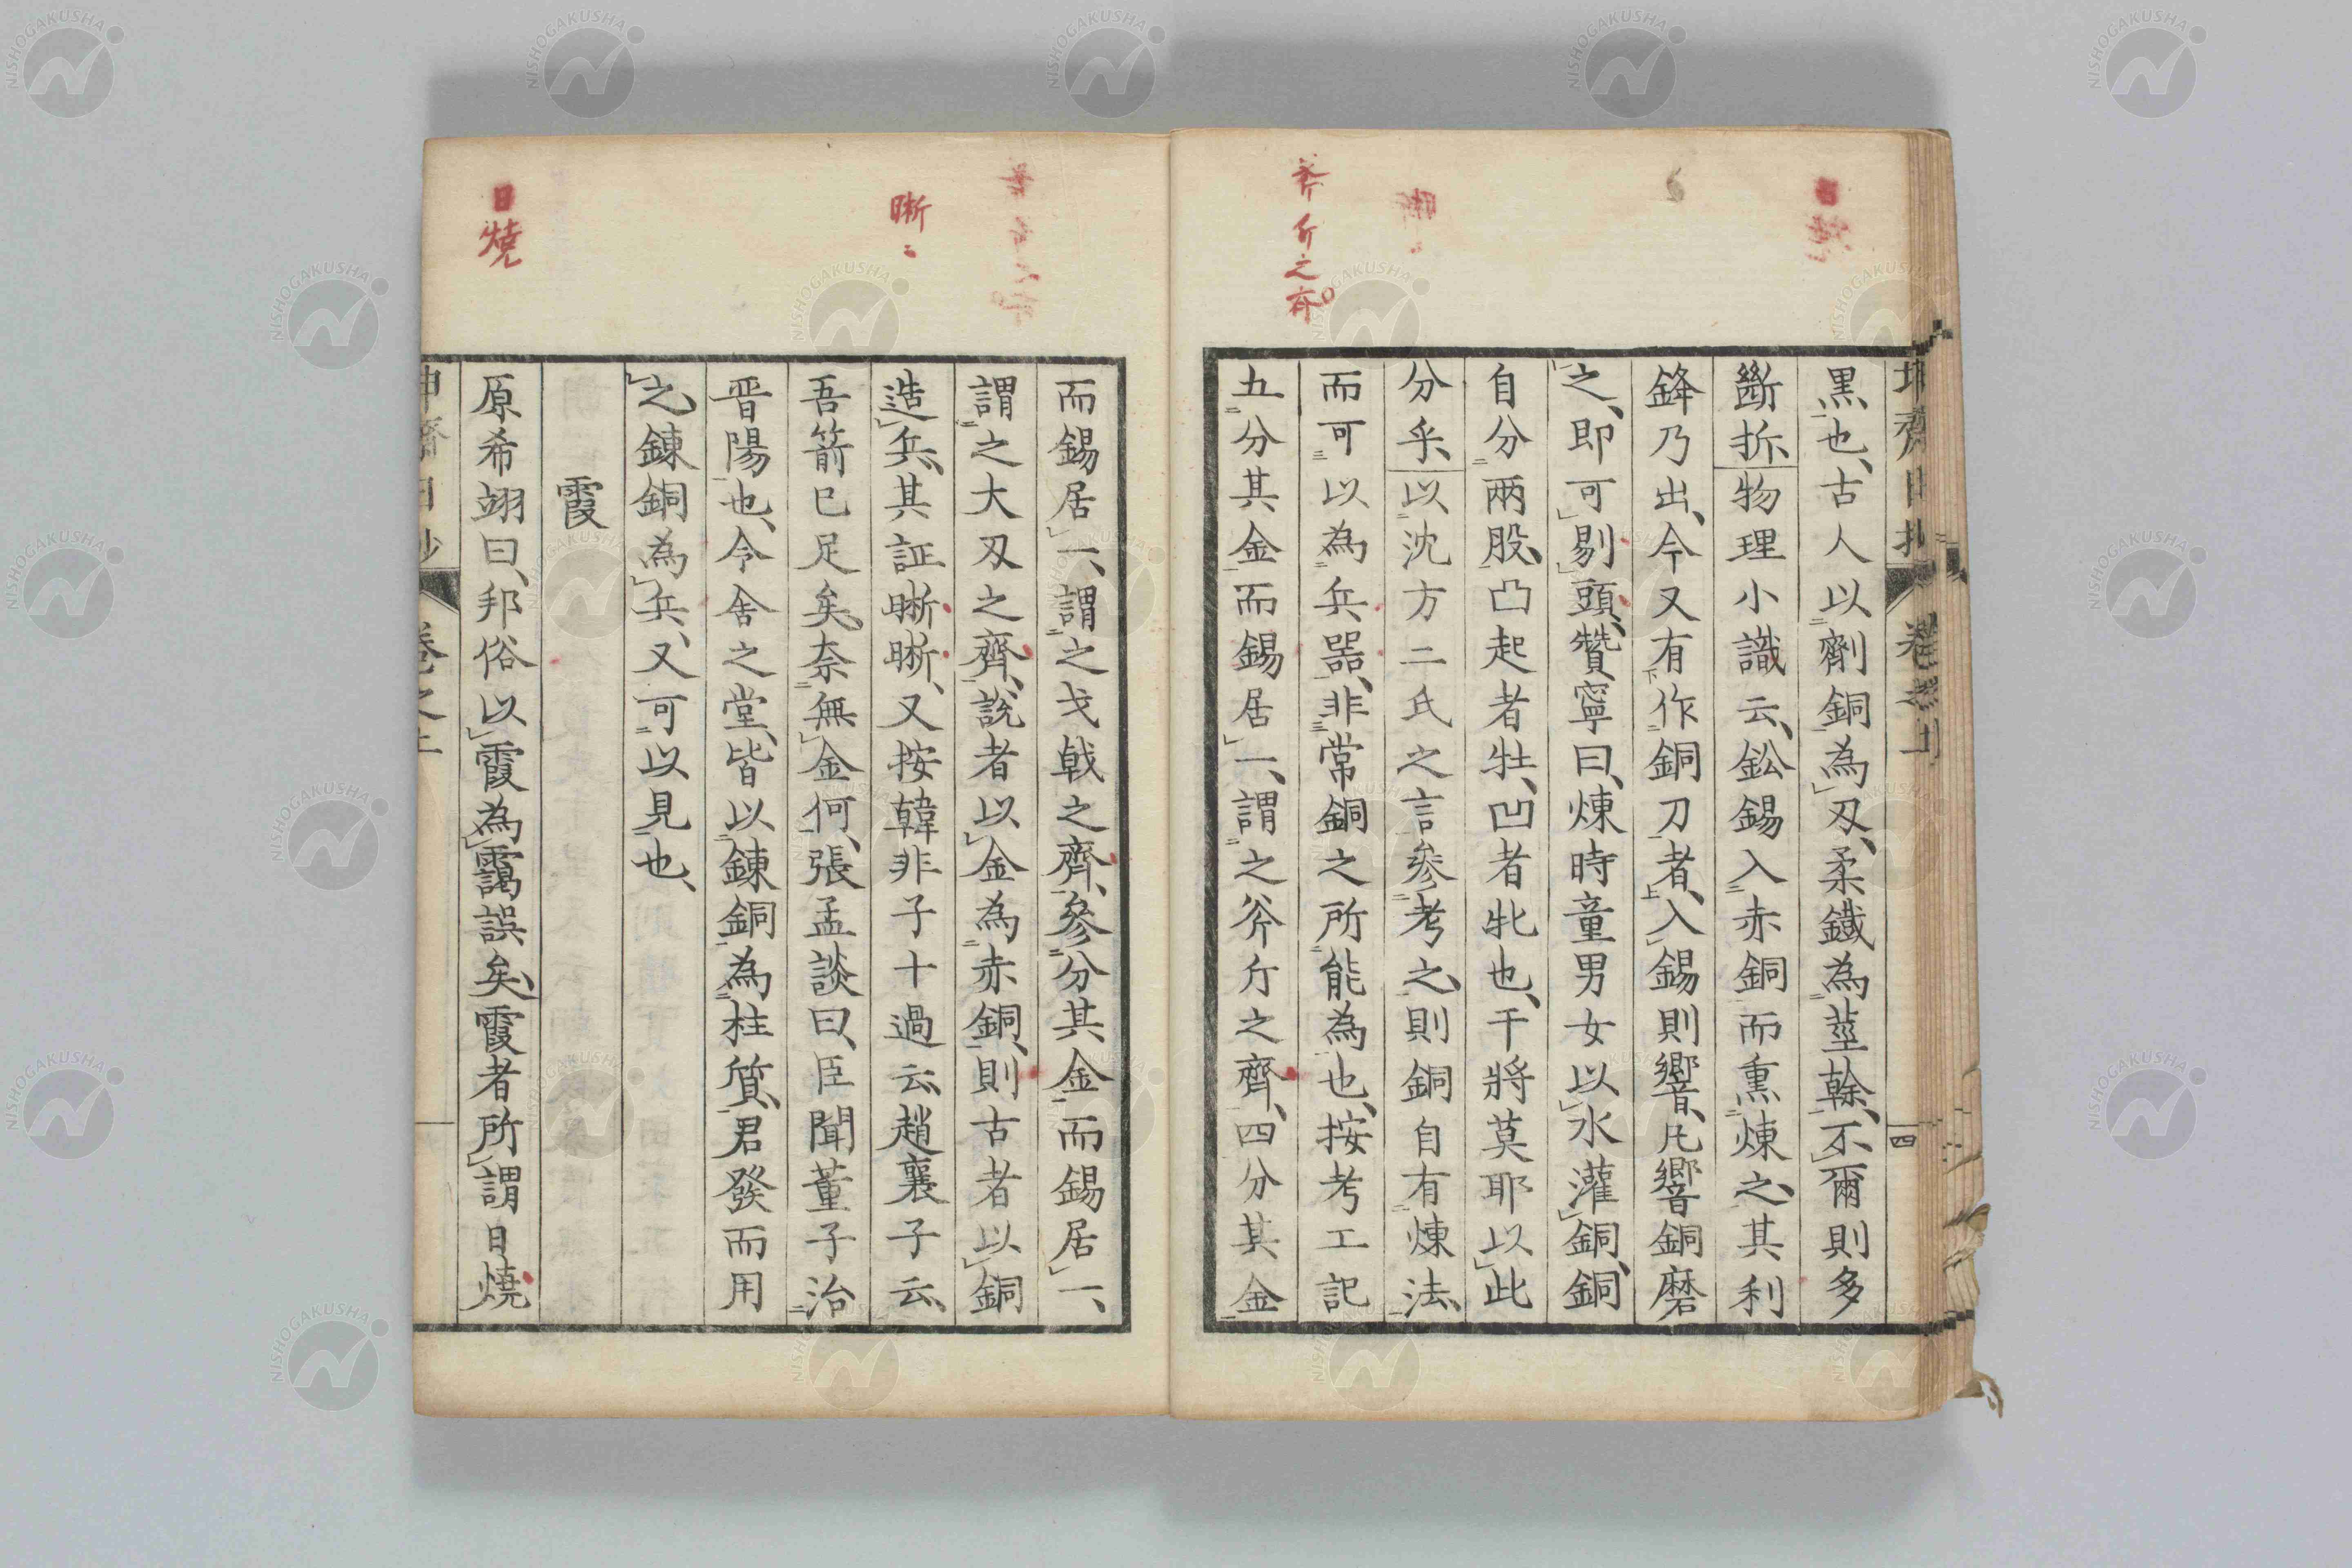 黒也、古人以劑銅為刄、柔鐵為莖榦、不爾則多
斷折物理小識云、鈆錫入赤銅而熏煉之、其利
鋒乃出、今又有作銅刀者、入錫則響、凡響銅磨
之、即可剔頭、贊寧曰、煉時童男女以水灌銅、銅
自分兩股、凸起者牡、凹者牝也、干將莫耶以此
分乎、以沈方二氏之言參考之、則銅自有煉法、
而可以為兵器、非常銅之所能為也、按考工記
五分其金而錫居一、謂之斧斤之齊、四分其金
而錫居一、謂之戈戟之齊、參分其金而錫居一、
謂之大刄之齊、説者以金為赤銅、則古者以銅
造兵、其証晣晣、又按韓非子十過云、趙襄子云、
吾箭已足矣、奈無金何、張孟談曰、臣聞董子治
晋陽也、令舍之堂、皆以鍊銅為柱質、君發而用
之、鍊銅為兵、又可以見也、
霞
原希翊曰、邦俗以霞為靄誤矣、霞者所謂日燒
斧斤之齊
晣〻
日燒
卷之上
四
NISHOGAKUSHA